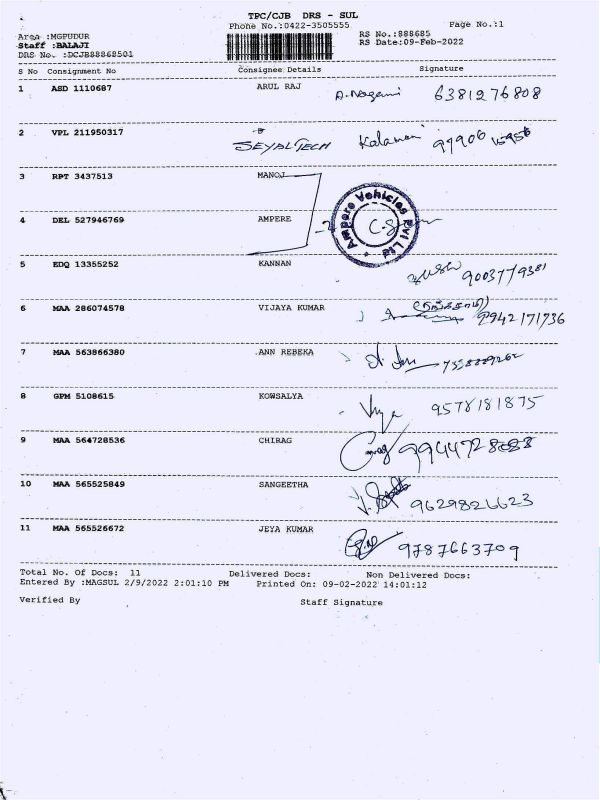 TPC/CJB DRS - SUL
Phone No.:0422-3505555
Page No.:1
Area :MGPUDUR
RS No.:888685
Staff :BALAJI
RS Date:09-Feb-2022
DRS No. :DCJB88868501
S No Consignment No Consignee Details Signature
1 ASD 1110687 ARUL RAJ 6381276808
2 VPL 211950317 SEYALTECH Kalamani
3 RPT 3437513 MANOJ
Ampere Vehicles Pvt Ltd
4 DEL 527946769 AMPERE
5 EDQ 13355252 KANNAN 9003779381
6 MAA 286074578 VIJAYA KUMAR 9942171736
7 MAA 563866380 ANN REBEKA
8 GPM 5108615 KOWSALYA 9578181875
9 MAA 564728536 CHIRAG
10 MAA 565525849 SANGEETHA 9629826623
11 MAA 565526672 JEYA KUMAR 9787663709
Total No. Of Docs: 11 Delivered Docs: Non Delivered Docs:
Entered By :MAGSUL 2/9/2022 2:01:10 PM Printed On: 09-02-2022 14:01:12
Verified By Staff Signature